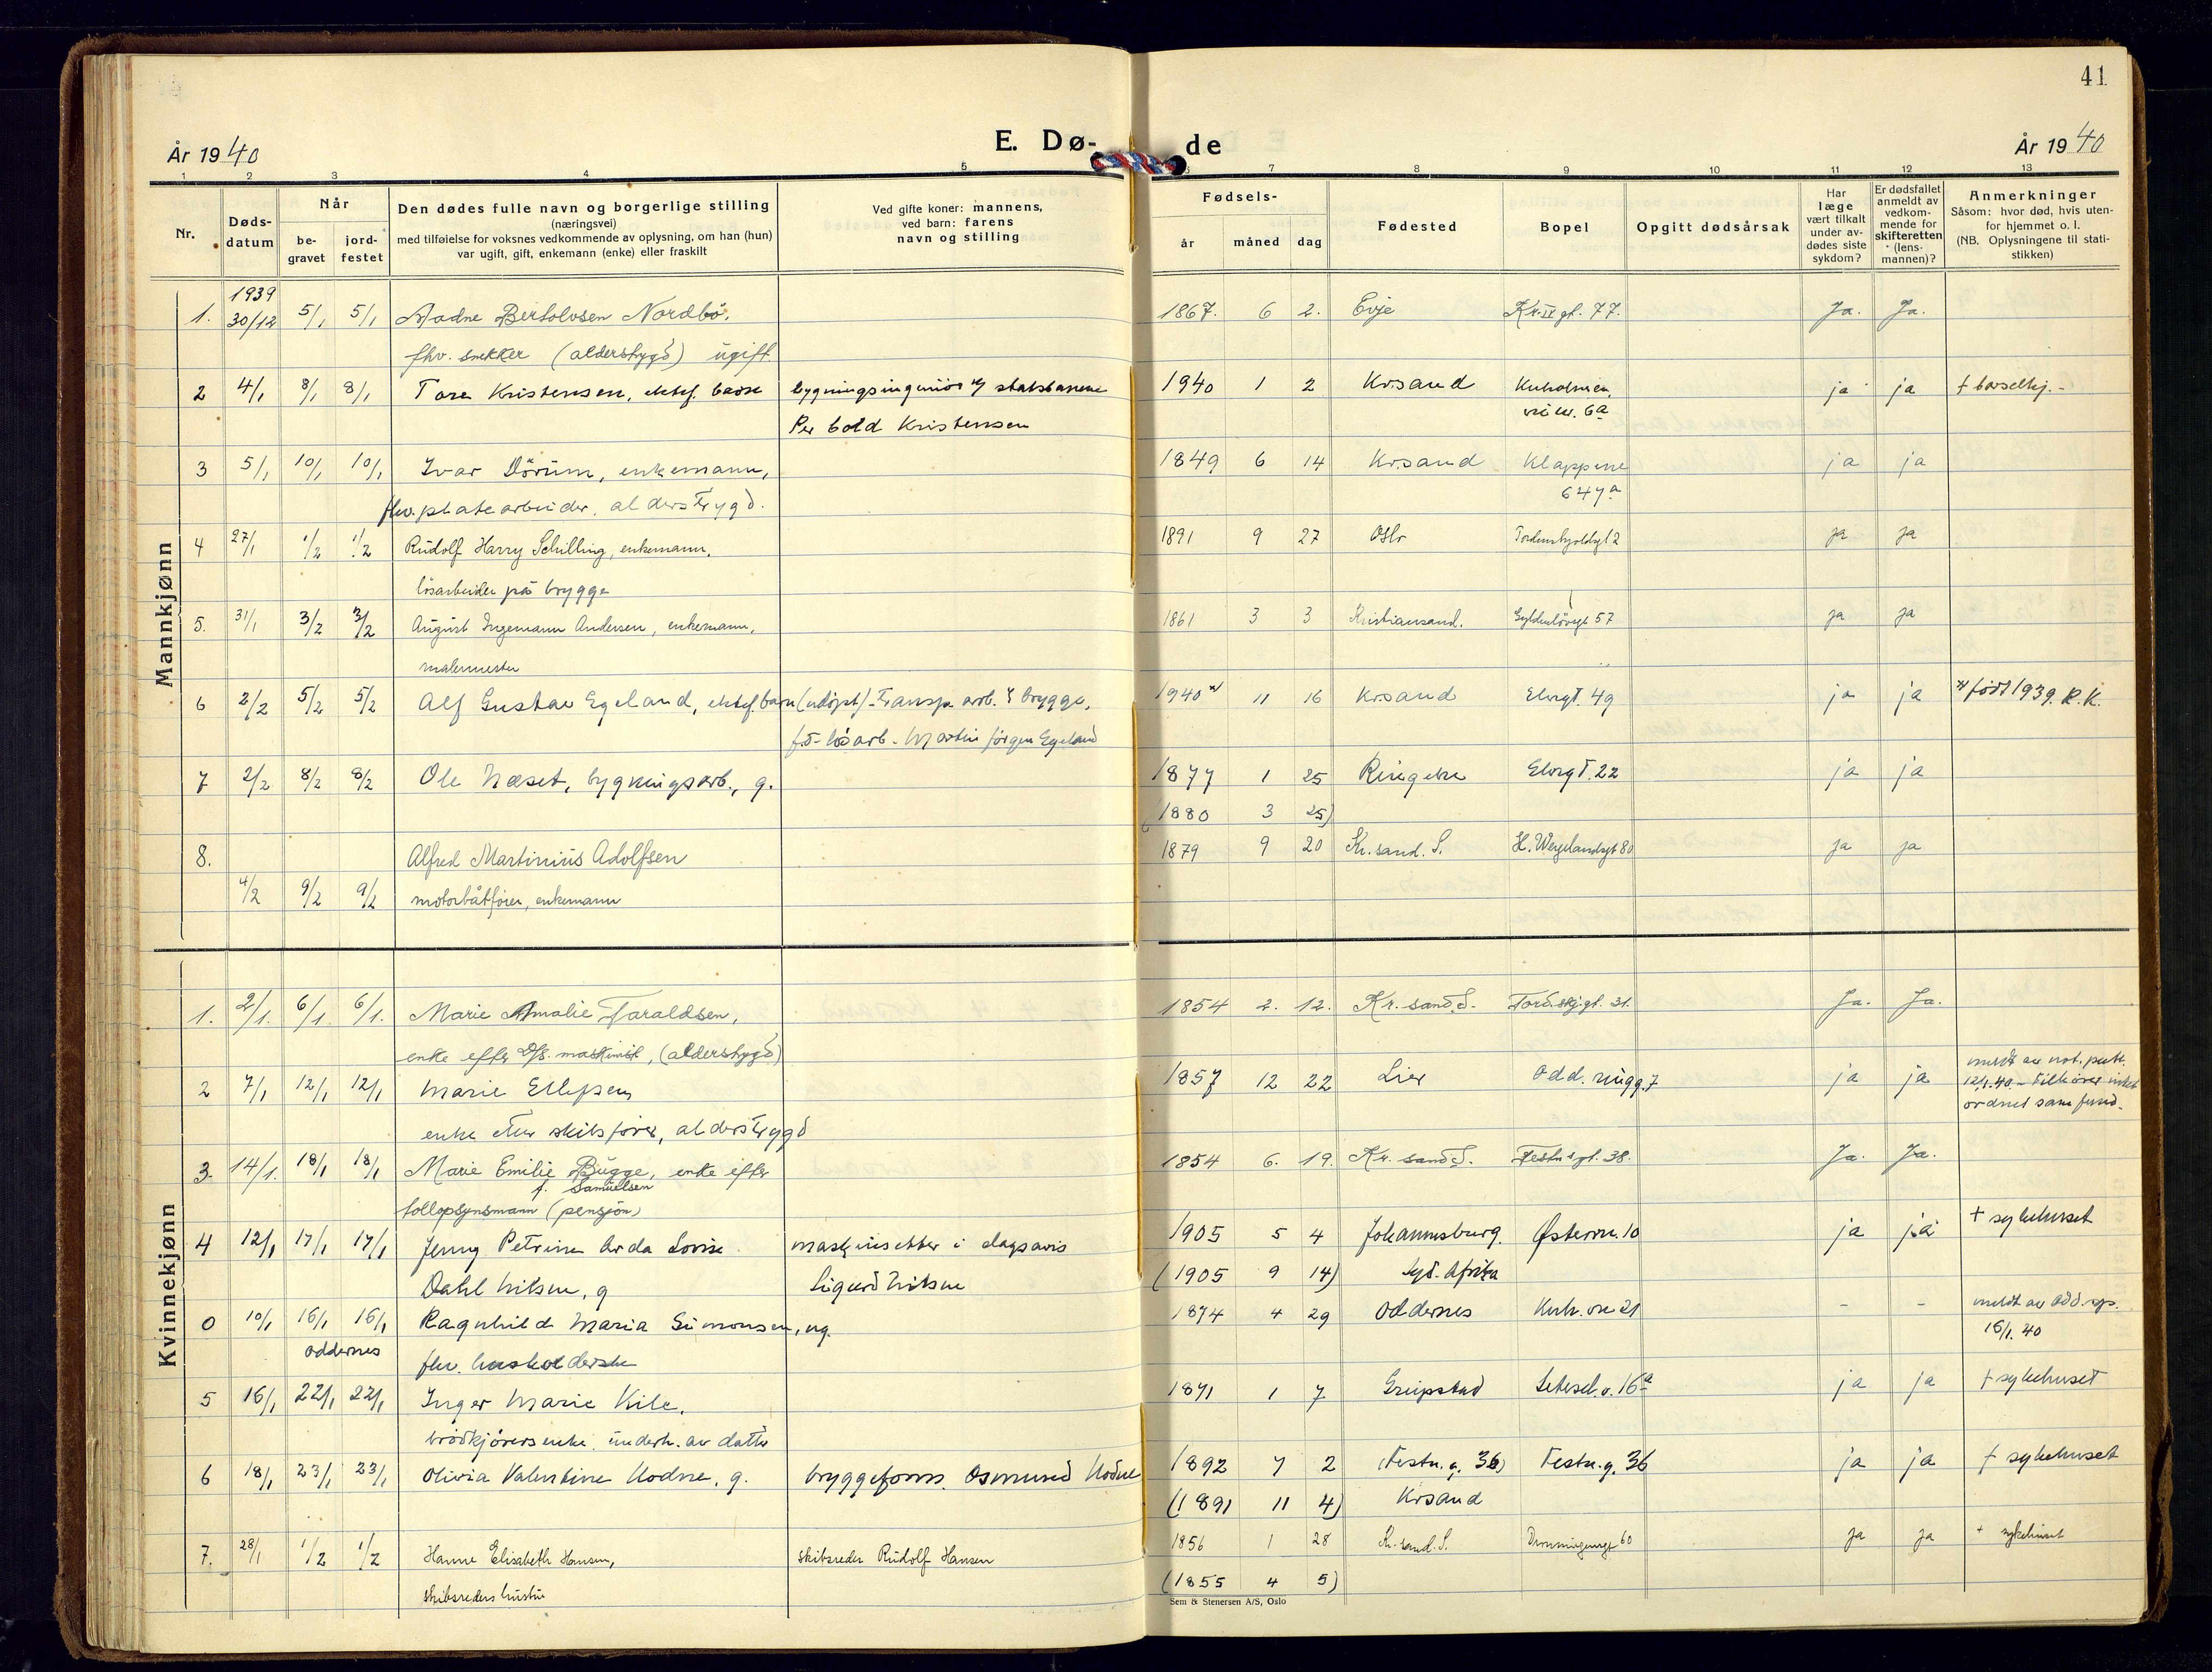 41
År 1940
E. Dø-
de
År 1940
1 2 3 4 5 6 7 8 9 10 11 12 13
Nr.
Døds-
datum
Når
be-
gravet
jord-
festet
Den dødes fulle navn og borgerlige stilling
(næringsvei)
med tilføielse for voksnes vedkommende av oplysning, om han (hun)
var ugift, gift, enkemann (enke) eller fraskilt
Ved gifte koner: mannens,
ved barn: farens
navn og stilling
Fødsels-
år måned dag
Fødested
Bopel
Opgitt dødsårsak
Har
læge
vært tilkalt
under av-
dødes siste
sykdom?
Er dødsfallet
anmeldt av
vedkom-
mende for
skifteretten
(lens-
mannen)?
Anmerkninger
Såsom: hvor død, hvis uten-
for hjemmet o. l.
(NB. Oplysningene til stati-
stikken)
Mannkjønn
1939
1. 30/12 5/1 5/1 Aadne Bertolvsen Nordbö, 1867. 6 2. Evje Kr. IV gt. 77. Ja. Ja.
fhv. snekker (alderstrygd) ugift
2 4/1 8/1 8/1 Tore Kristensen, ektef. barn bygningsingeniör v/ statsbanene 1940 1 2 Krsand Kuholmen, ja ja + barselhj. -
Per Bold Kristensen vei nr. 6a
3 5/1 10/1 10/1 Ivar Dörum, enkemann, 1849 6 14 Krsand Klappene ja ja
fhv. platearbeider, alderstrygd. 647a
4 27/1 1/2 1/2 Rudolf Harry Schilling, enkemann, 1891 9 27 Oslo Tordenskjoldsgt 2 ja ja
lösarbeider på brygge
5. 31/1 3/2 3/2 August Ingemann Andersen, enkemann, 1861 3 3 Kristiansand. Gyldenlövesgt 57 ja ja
malermester
6 2/2 5/2 5/2 Alf Gustav Egeland, ektef. barn (udöpt) - Transp. arb. brygge, 1940 x) 11 16 Krsand Elvegt. 49 ja ja x) född 1939. R.K.
Martin Jörgen Egeland
7 2/2 8/2 8/2 Ole Næset, bygningsarb., g. 1877 1 25 Ringebu Elvegt. 22 ja ja
(1880 3 25)
8. Alfred Martinius Adolfsen 1879 9 20 Kr.sand. S. H. Wergelandsgt 80 ja ja
4/2 9/2 9/2 motorbåtförer, enkemann
Kvinnekjønn
1. 2/1. 6/1. 6/1. Marie Amalie Taraldsen, 1854 2. 12. Kr. sand S. Tord.skj.gt. 31. Ja. Ja.
enke efter D/S. maskinist, (alderstrygd)
2 7/1 12/1 12/1 Marie Ellefsen 1857 12 22 Lier Odd. ringg. 7 ja ja
enke etter skibsförer, alderstrygd
12/1.40
3. 14/1. 18/1 18/1 Marie Emilie Bugge, enke efter 1854 6. 19. Kr. sand S. Festn.gt. 38. Ja. Ja.
f. Samuelsen
tollopsynsmann (pensjon)
4 12/1 17/1 17/1 Jenny Petrine Arda Lovise maskinsetter i dagsavis 1905 5 4 Johannesburg. Østerve. 10 ja ja + sykehuset
Dahl Nilsen, g Sigurd Nilsen (1905 9 14) Syd. Afrika
0 10/1 16/1 16/1 Ragnhild Maria Simonsen, ug. 1874 4 29 Oddernes Kuh. vei 21 - - meldt av Odd. sp.
oddernes fhv. husholderske 16/1. 40
5 16/1 22/1 22/1 Inger Marie Kile, 1871 1 7 Greipstad Setesd. v. 16a ja ja + sykehuset
brödkjörers enke, underh. av datter
6 18/1 23/1 23/1 Olivia Valentine Hodne, g. bryggeform. Osmund Hodne 1892 7 2 (Festn. g. 36) Festn. g. 36 ja ja + sykehuset
(1891 11 4) Krsand
7. 28/1 1/2 1/2 Hanne Elisabeth Hansen, skibsreder Rudolf Hansen 1856 1 28 Kr. sand. S. Dronningensgt 60 ja ja + sykehuset
skibsreders hustru (1855 4 5)
Sem & Stenersen A/S, Oslo